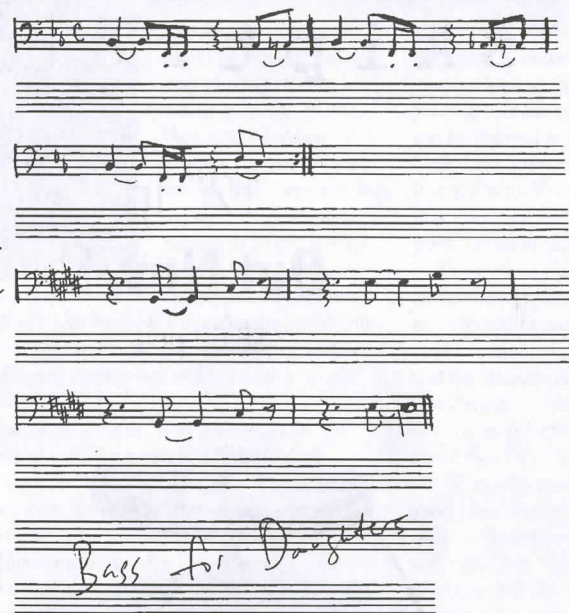 Bass for Daughters